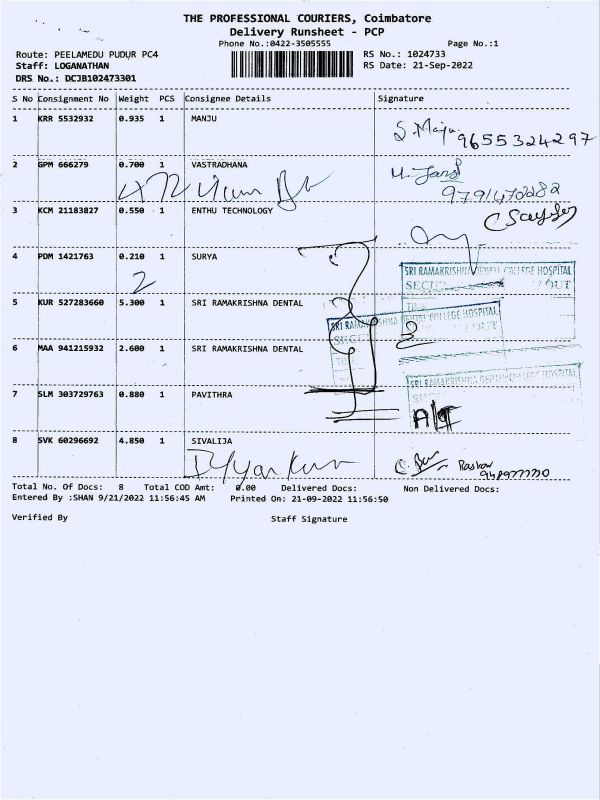 THE PROFESSIONAL COURIERS, Coimbatore
Delivery Runsheet - PCP
Phone No.:0422-3505555
Page No.:1
Route: PEELAMEDU PUDUR PC4
RS No.: 1024733
Staff: LOGANATHAN
RS Date: 21-Sep-2022
DRS No.: DCJB102473301
S No Consignment No Weight PCS Consignee Details Signature
1 KRR 5532932 0.935 1 MANJU
S. Manju 9655324297
2 GPM 666279 0.700 1 VASTRADHANA
9791472282
3 KCM 21183827 0.550 1 ENTHU TECHNOLOGY
4 PDM 1421763 0.210 1 SURYA
2
SRI RAMAKRISHNA DENTAL COLLEGE HOSPITAL
OUT
5 KUR 527283660 5.300 1 SRI RAMAKRISHNA DENTAL
SRI RAMAKRISHNA DENTAL COLLEGE HOSPITAL
OUT
6 MAA 941215932 2.600 1 SRI RAMAKRISHNA DENTAL
SRI RAMAKRISHNA DENTAL COLLEGE HOSPITAL
7 SLM 303729763 0.880 1 PAVITHRA
8 SVK 60296692 4.850 1 SIVALIJA
Total No. Of Docs: 8 Total COD Amt: 0.00 Delivered Docs: Non Delivered Docs:
Entered By :SHAN 9/21/2022 11:56:45 AM Printed On: 21-09-2022 11:56:50
Verified By Staff Signature